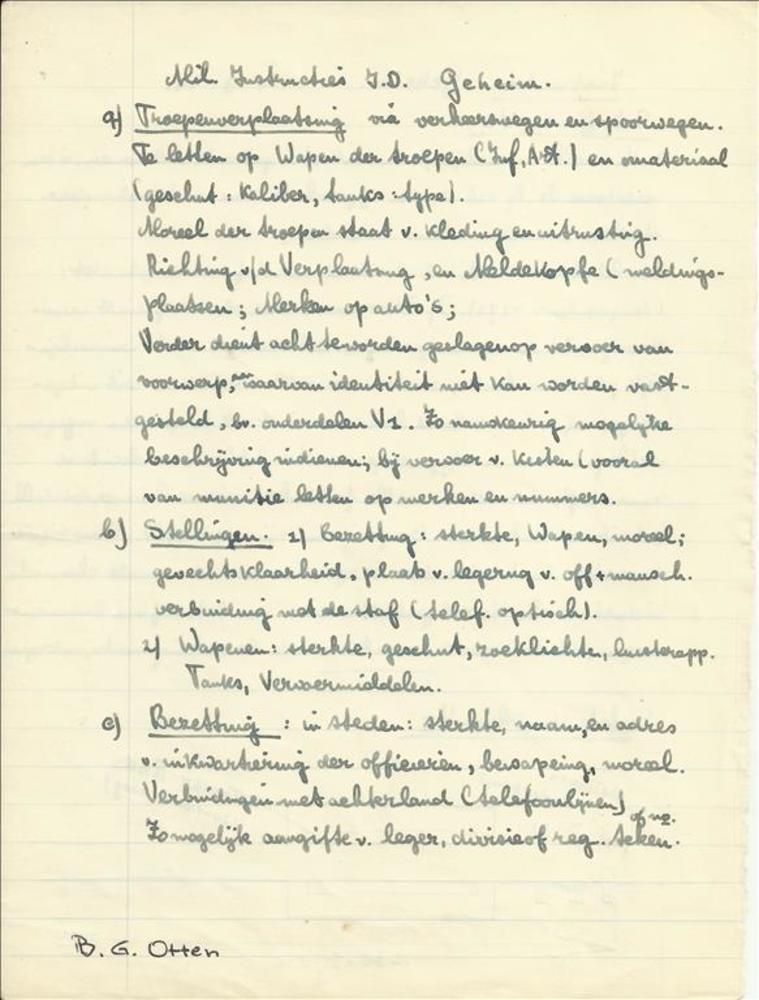 Mil. Instructies I.D. Geheim.
a) Troepenverplaatsing via verkeerswegen en spoorwegen.
Te letten op Wapen der troepen (Inf, Art.) en materiaal
(geschut : Kaliber, tanks : type).
Moreel der troepen staat v. kleding en uitrusting.
Richting v/d Verplaatsing, en Meldeköpfe (meldings-
plaatsen; Merken op auto's;
Verder dient acht te worden geslagen op vervoer van
voorwerpen, waarvan identiteit niet kan worden vast-
gesteld, bv. onderdelen V1. Zo nauwkeurig mogelijke
beschrijving indienen; bij vervoer v. Kisten (vooral
van munitie letten op merken en nummers.
b) Stellingen. 1) Bezetting : sterkte, Wapen, moreel;
gevechtsklaarheid, plaats v. legering v. off + mansch.
verbinding met de staf (telef. optisch).
2) Wapenen : sterkte, geschut, zoeklichten, luisterapp.
Tanks, Vervoermiddelen.
c) Bezetting : in steden : sterkte, naam, en adres
v. inkwartiering der officieren, bewapeing, moreel.
Verbindingen met achterland (telefoonlijnen)
Zo mogelijk aangifte v. leger, divisie of reg. teken. of no.
B. G. Otten